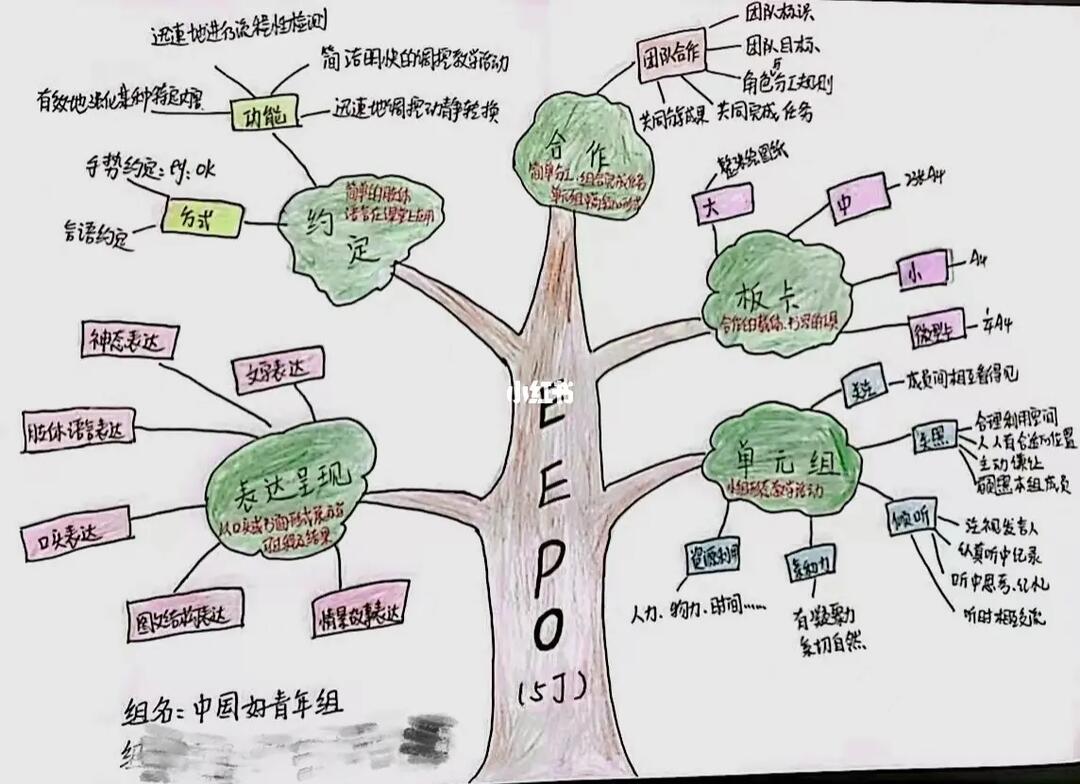 迅速地进行流程性检测
简洁明快的调控教学活动
有效地强化某种特定效果
迅速地调控动静转换
功能
手势约定:eg:OK
方式
言语约定
约定
简单的肢体
语言在课堂上应用
团队合作
团队标识
团队目标、
与
角色分工规则
共同完成任务
共同分享成果
合作
简单分工、组合完成任务
单元组
板卡
整张绘图纸
大
中
2张A4
小
A4
微型卡
½A4
合作的载体、书写的
神态表达
文字表达
肢体语言表达
口头表达
图文结构表达
情景故事表达
表达呈现
以口头或书面形式展示学
习过程及结果
单元组
小组形态教学活动
关注
成员间相互看得见
关照
合理利用空间
人人有合适的位置
主动谦让
关照本组成员
倾听
注视发言人
认真听中记录
听中思考、
听时相交流
资源利用
人力、物力、时间……
亲和力
有凝聚力
亲切自然
小红书
EEEPO
(5J)
组名:中国好青年组